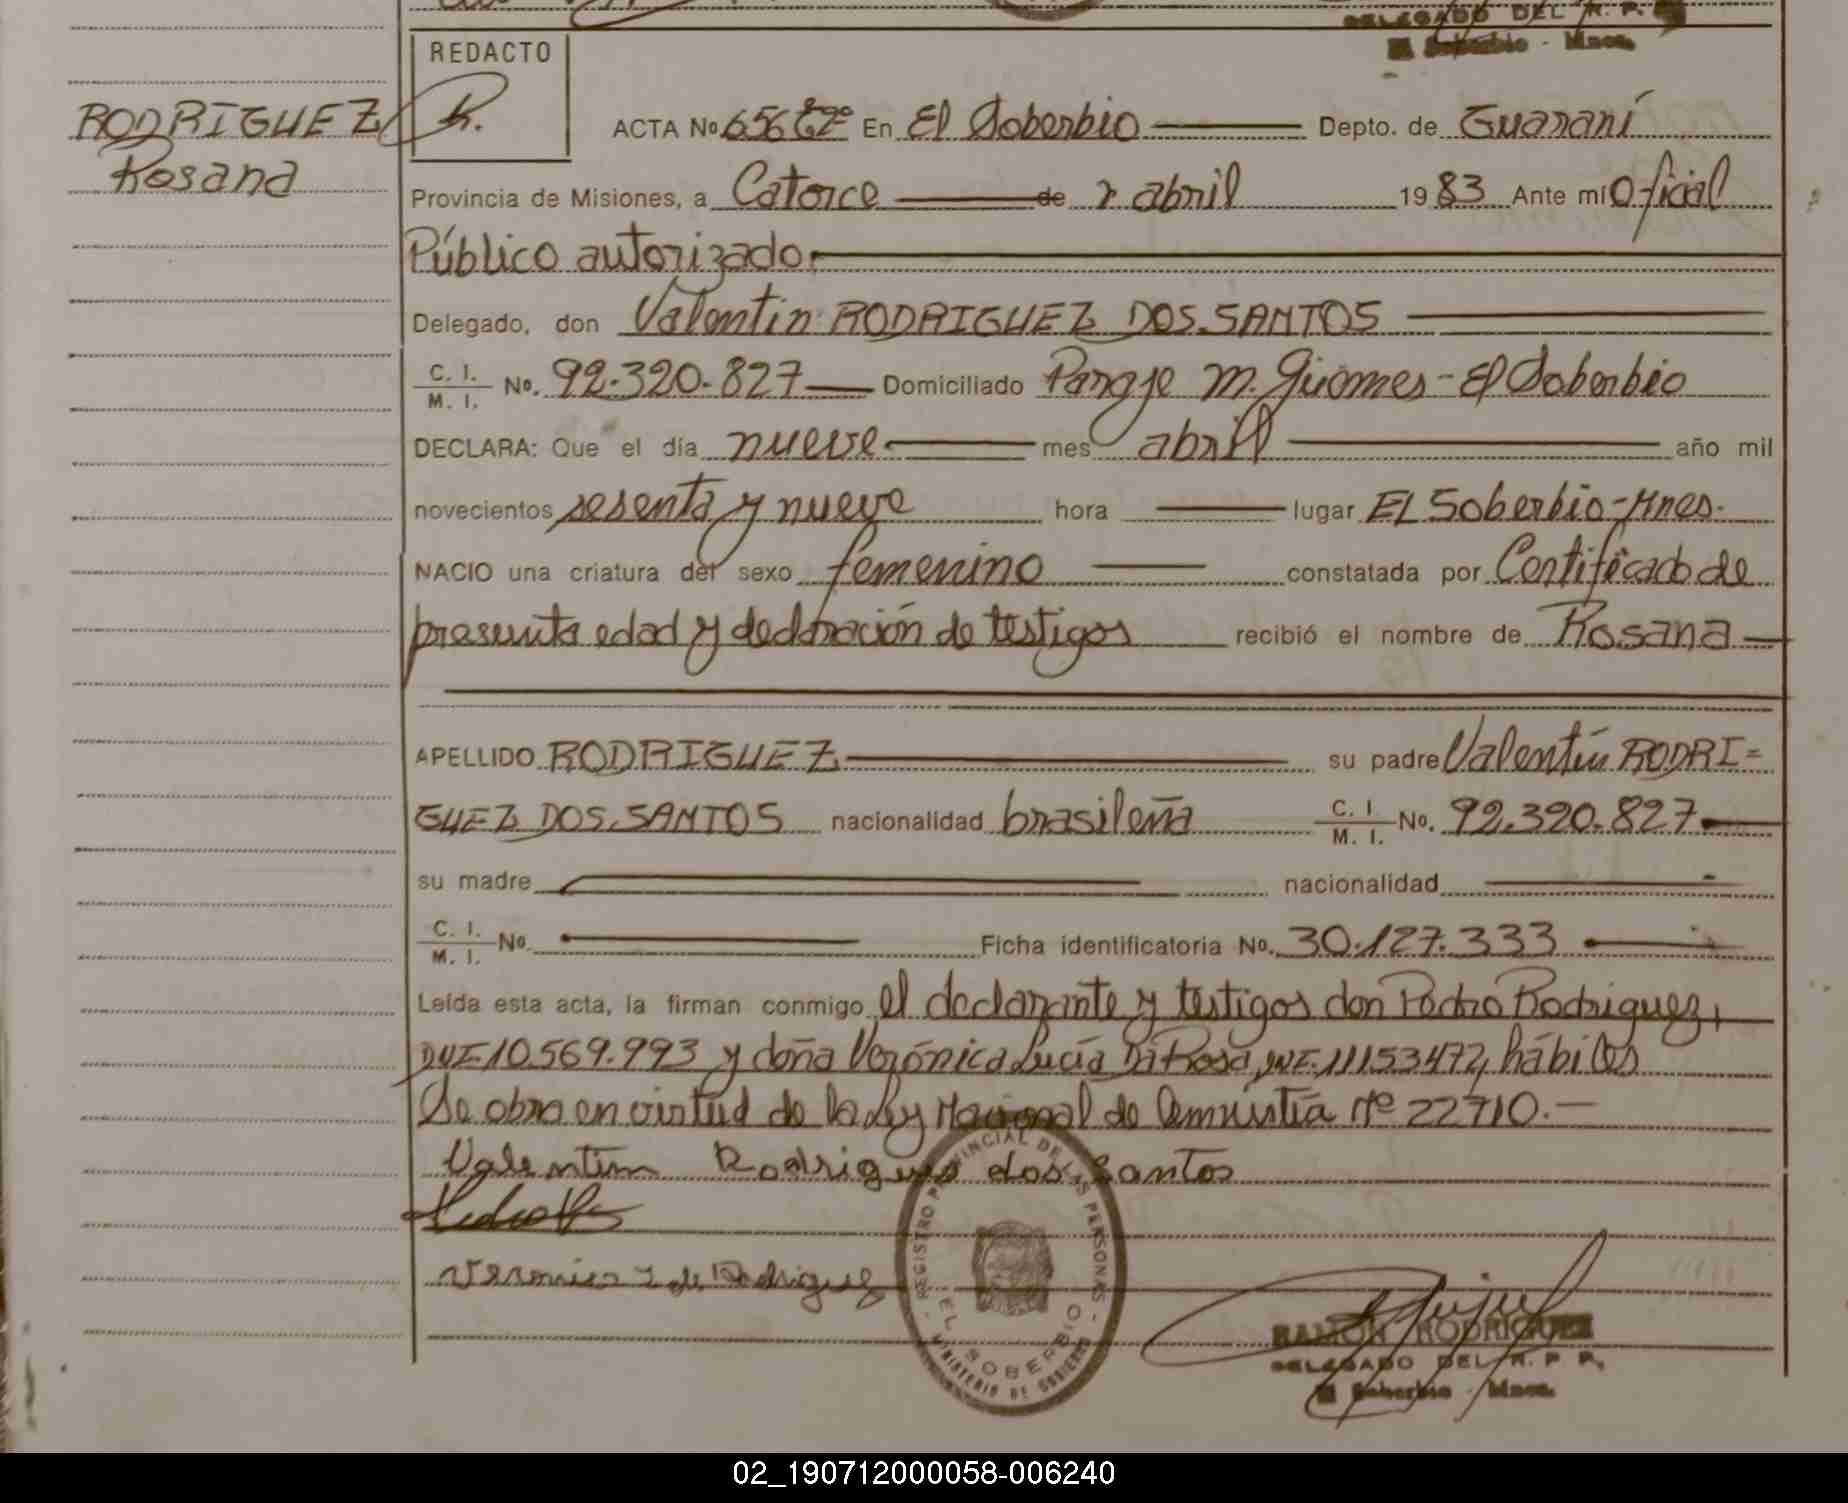 DELEGADO DEL R. P. P.
El Soberbio - Mnes.
REDACTO
RODRIGUEZ
R.
ACTA No 656 En El Soberbio Depto. de Guaraní
Rosana
Provincia de Misiones, a Catorce de abril 1983 Ante mí Oficial
Público autorizado.
Delegado, don Valentin RODRIGUEZ DOS SANTOS
C. I.
M. I. No. 92.320.827 Domiciliado Paraje M. Güemes - El Soberbio
DECLARA: Que el día nueve mes abril año mil
novecientos sesenta y nueve hora lugar EL Soberbio - Mnes.
NACIO una criatura del sexo femenino constatada por Certificado de
presunta edad y declaración de testigos recibió el nombre de Rosana
APELLIDO RODRIGUEZ su padre Valentín RODRI=
GUEZ DOS SANTOS nacionalidad brasileña C. I.
M. I. No. 92.320.827
su madre nacionalidad
C. I.
M. I. No Ficha identificatoria No. 30.127.333
Leída esta acta, la firman conmigo el declarante y testigos don Pedro Rodriguez,
DNI. 10.569.993 y doña Verónica Lucía Da Rosa, DNI. 11153472, hábiles
Se obra en virtud de la Ley Nacional de Amnistía Nº 22710.—
Valentim Rodrigues dos Santos
Veronica L de Rodriguez
REGISTRO PROVINCIAL DE LAS PERSONAS
- MINISTERIO DE GOBIERNO -
EL SOBERBIO
RAMON RODRIGUEZ
DELEGADO DEL R. P. P.
El Soberbio - Mnes.
02_190712000058-006240